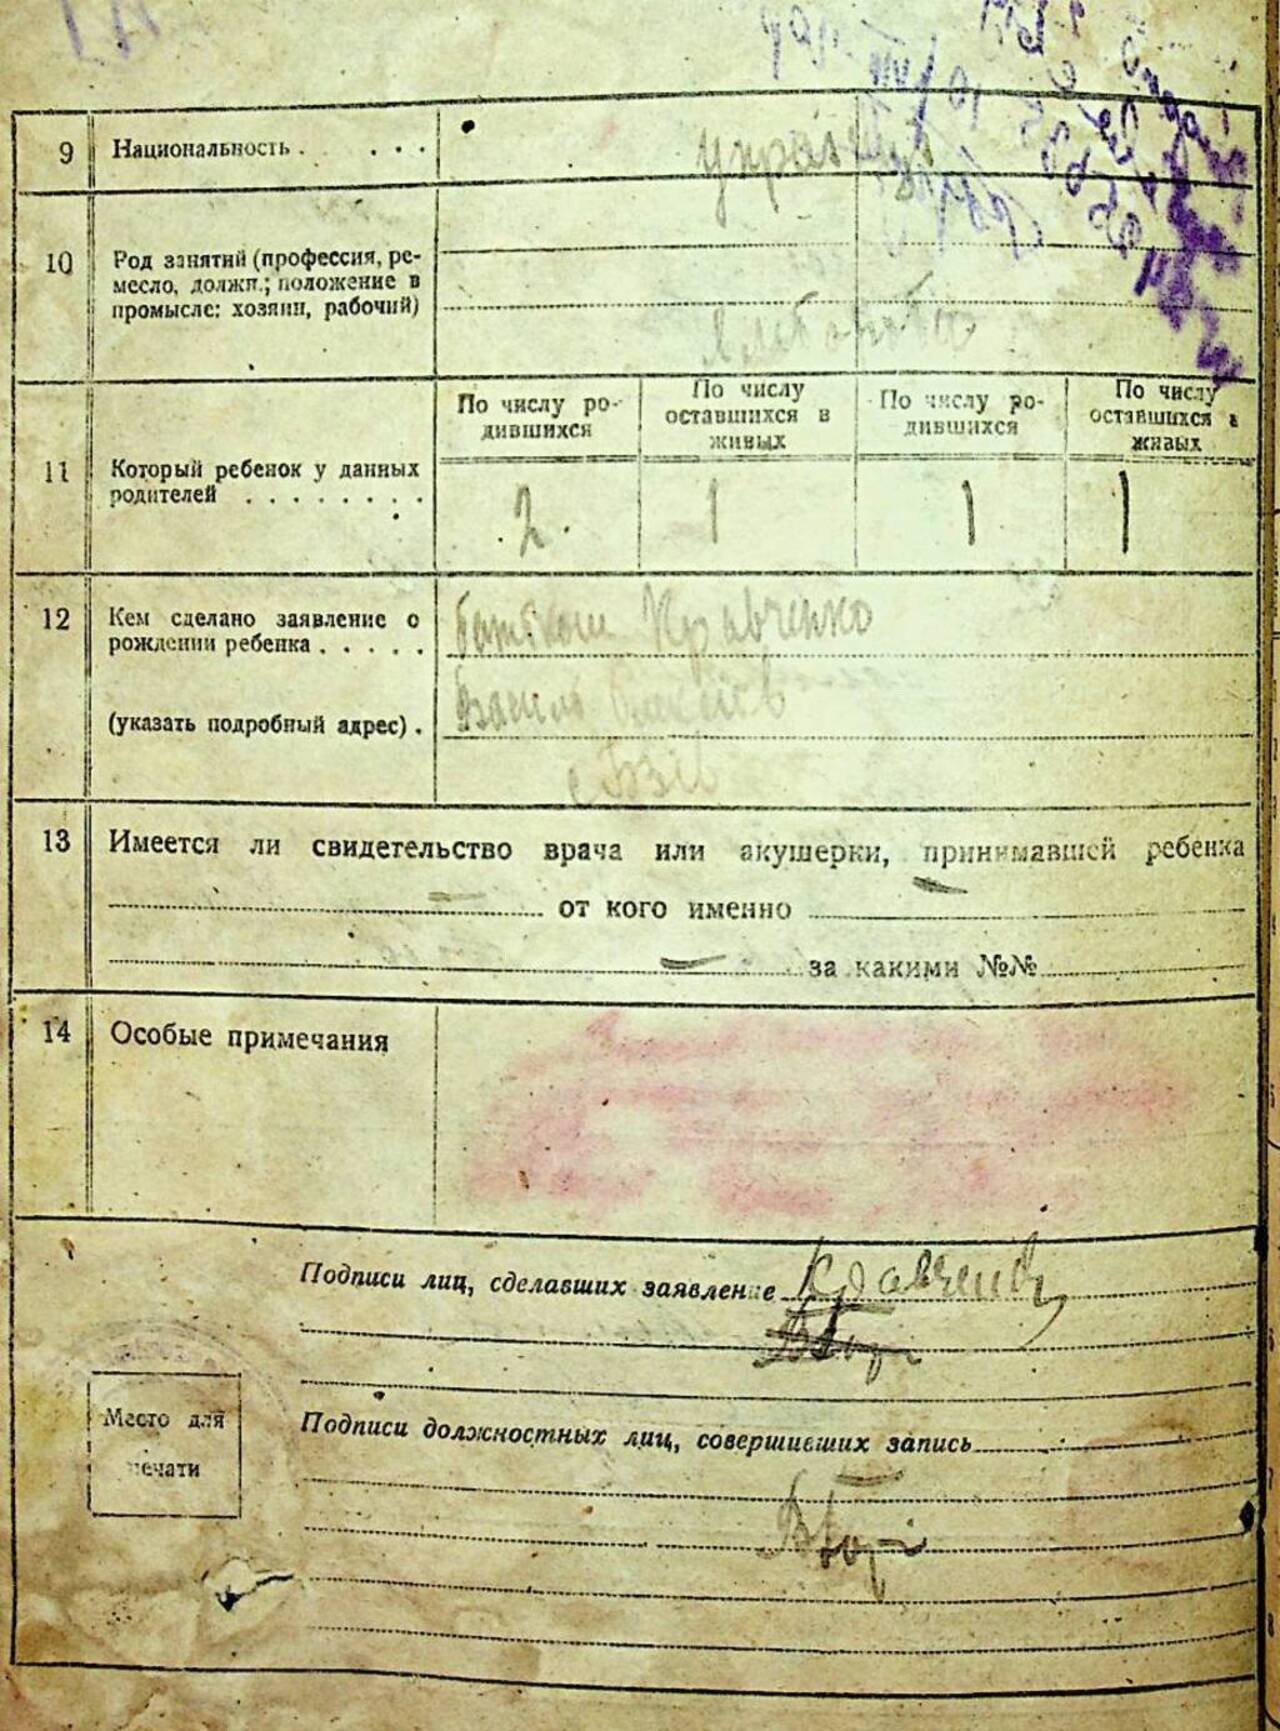 9 Национальность . . . . украінці
10 Род занятий (профессия, ре-
месло, должн.; положение в
промысле: хозяин, рабочий)
хлібороби
По числу ро-
дившихся
По числу
оставшихся в
живых
По числу ро-
дившихся
По числу
оставшихся в
живых
11 Который ребенок у данных
родителей . . . . . . . .
2. 1 1 1
12 Кем сделано заявление о
рождении ребенка . . . . .
Батьком Кравченко
(указать подробный адрес) . Василь
с Бзів
13 Имеется ли свидетельство врача или акушерки, принимавшей ребенка
от кого именно
за какими №№
14 Особые примечания
Подписи лиц, сделавших заявление Кравченко
Подписи должностных лиц, совершивших запись
Место для
печати